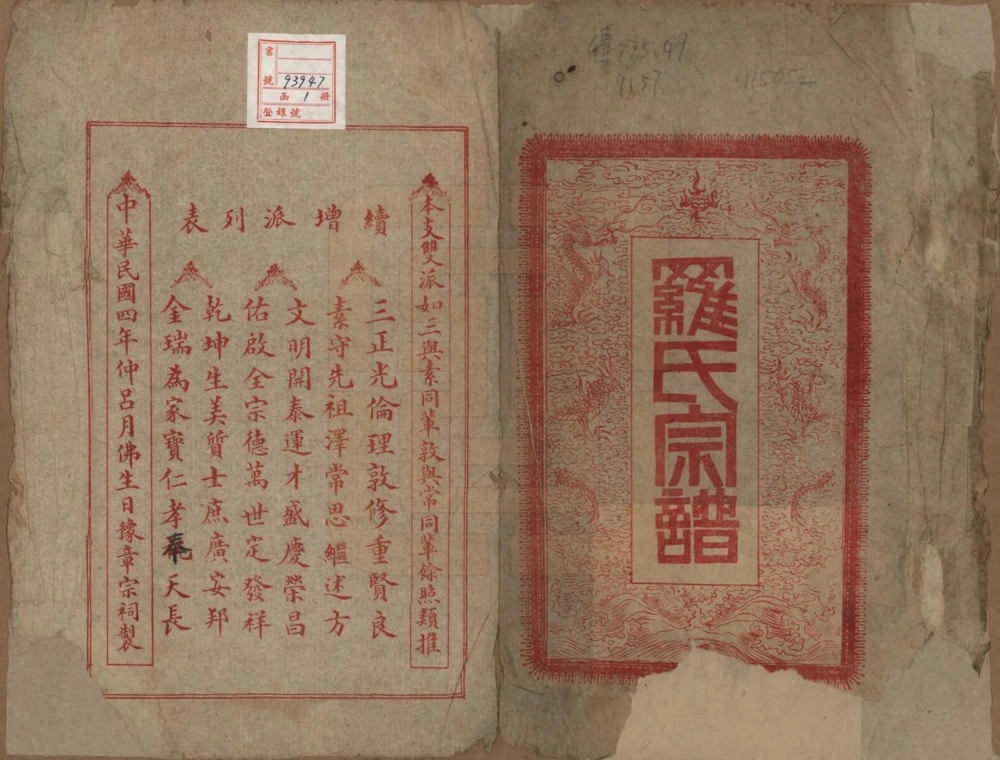 羅氏宗譜
傳 775.49
9157
15052
書
號 93947
函 1 冊
登錄號
續增派列表
本支雙派如三與素同輩敦與常同輩餘照類推
三正光倫理敦修重賢良
素守先祖澤常思繼述方
文明開泰運才盛慶榮昌
佑啟全宗德萬世定發祥
乾坤生美質士庶廣安邦
金瑞為家寶仁孝奉天長
中華民國四年仲呂月佛生日豫章宗祠製